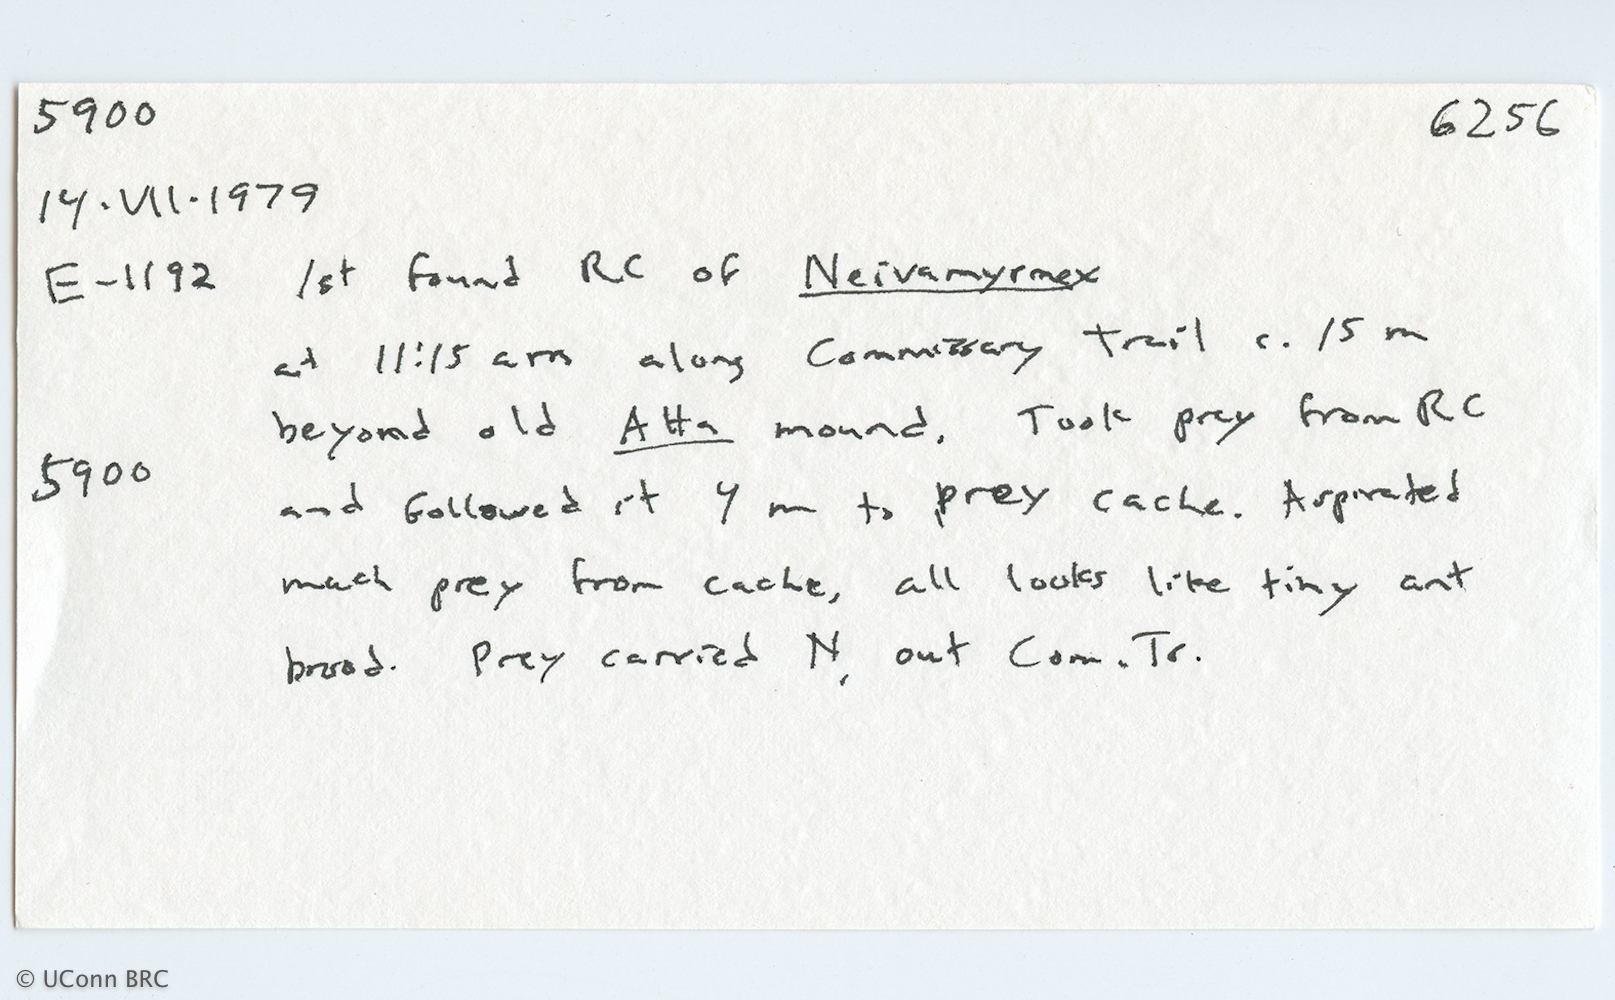 5900 6256
14.VII.1979
E-1192 1st found RC of Neivamyrmex
at 11:15 am along Commissary Trail c. 15 m
beyond old Atta mound. Took prey from RC
5900
and followed it 4 m to prey cache. Aspirated
much prey from cache, all looks like tiny ant
brood. Prey carried N, out Com. Tr.
© UConn BRC